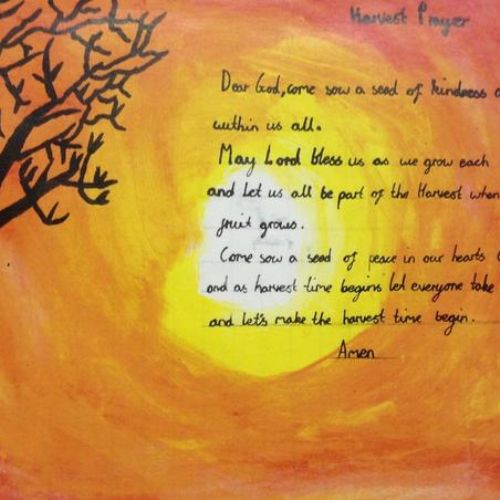 Harvest Prayer
Dear God, come sow a seed of kindness
within us all.
May Lord bless us as we grow each
and let us all be part of the Harvest when
fruit grows.
Come sow a seed of peace in our hearts
and as harvest time begins let everyone take
and let's make the harvest time begin.
Amen